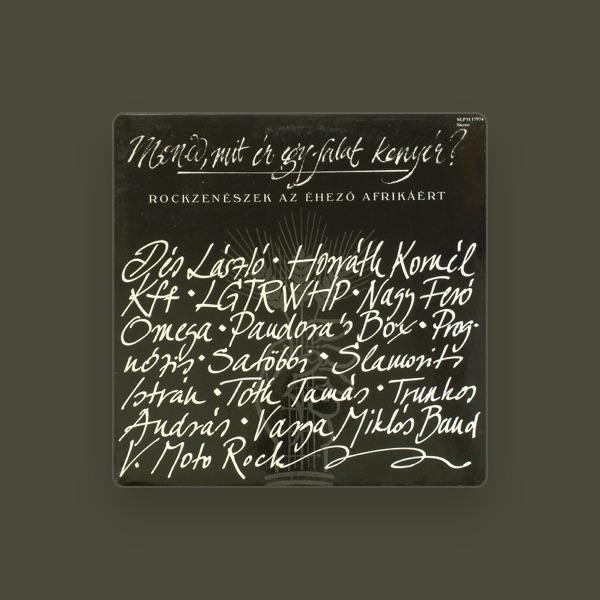 SLPM 17974
Stereo
Mondd, mit ér egy falat kenyér?
ROCKZENÉSZEK AZ ÉHEZŐ AFRIKÁÉRT
Dés László • Horváth Kornél
Kft • LGTRWHP • Nagy Feró
Omega • Pandora's Box • Prog-
nózis • Satöbbi • Slamovits
István • Tóth Tamás • Trunkos
András • Varga Miklós Band
V. Moto Rock